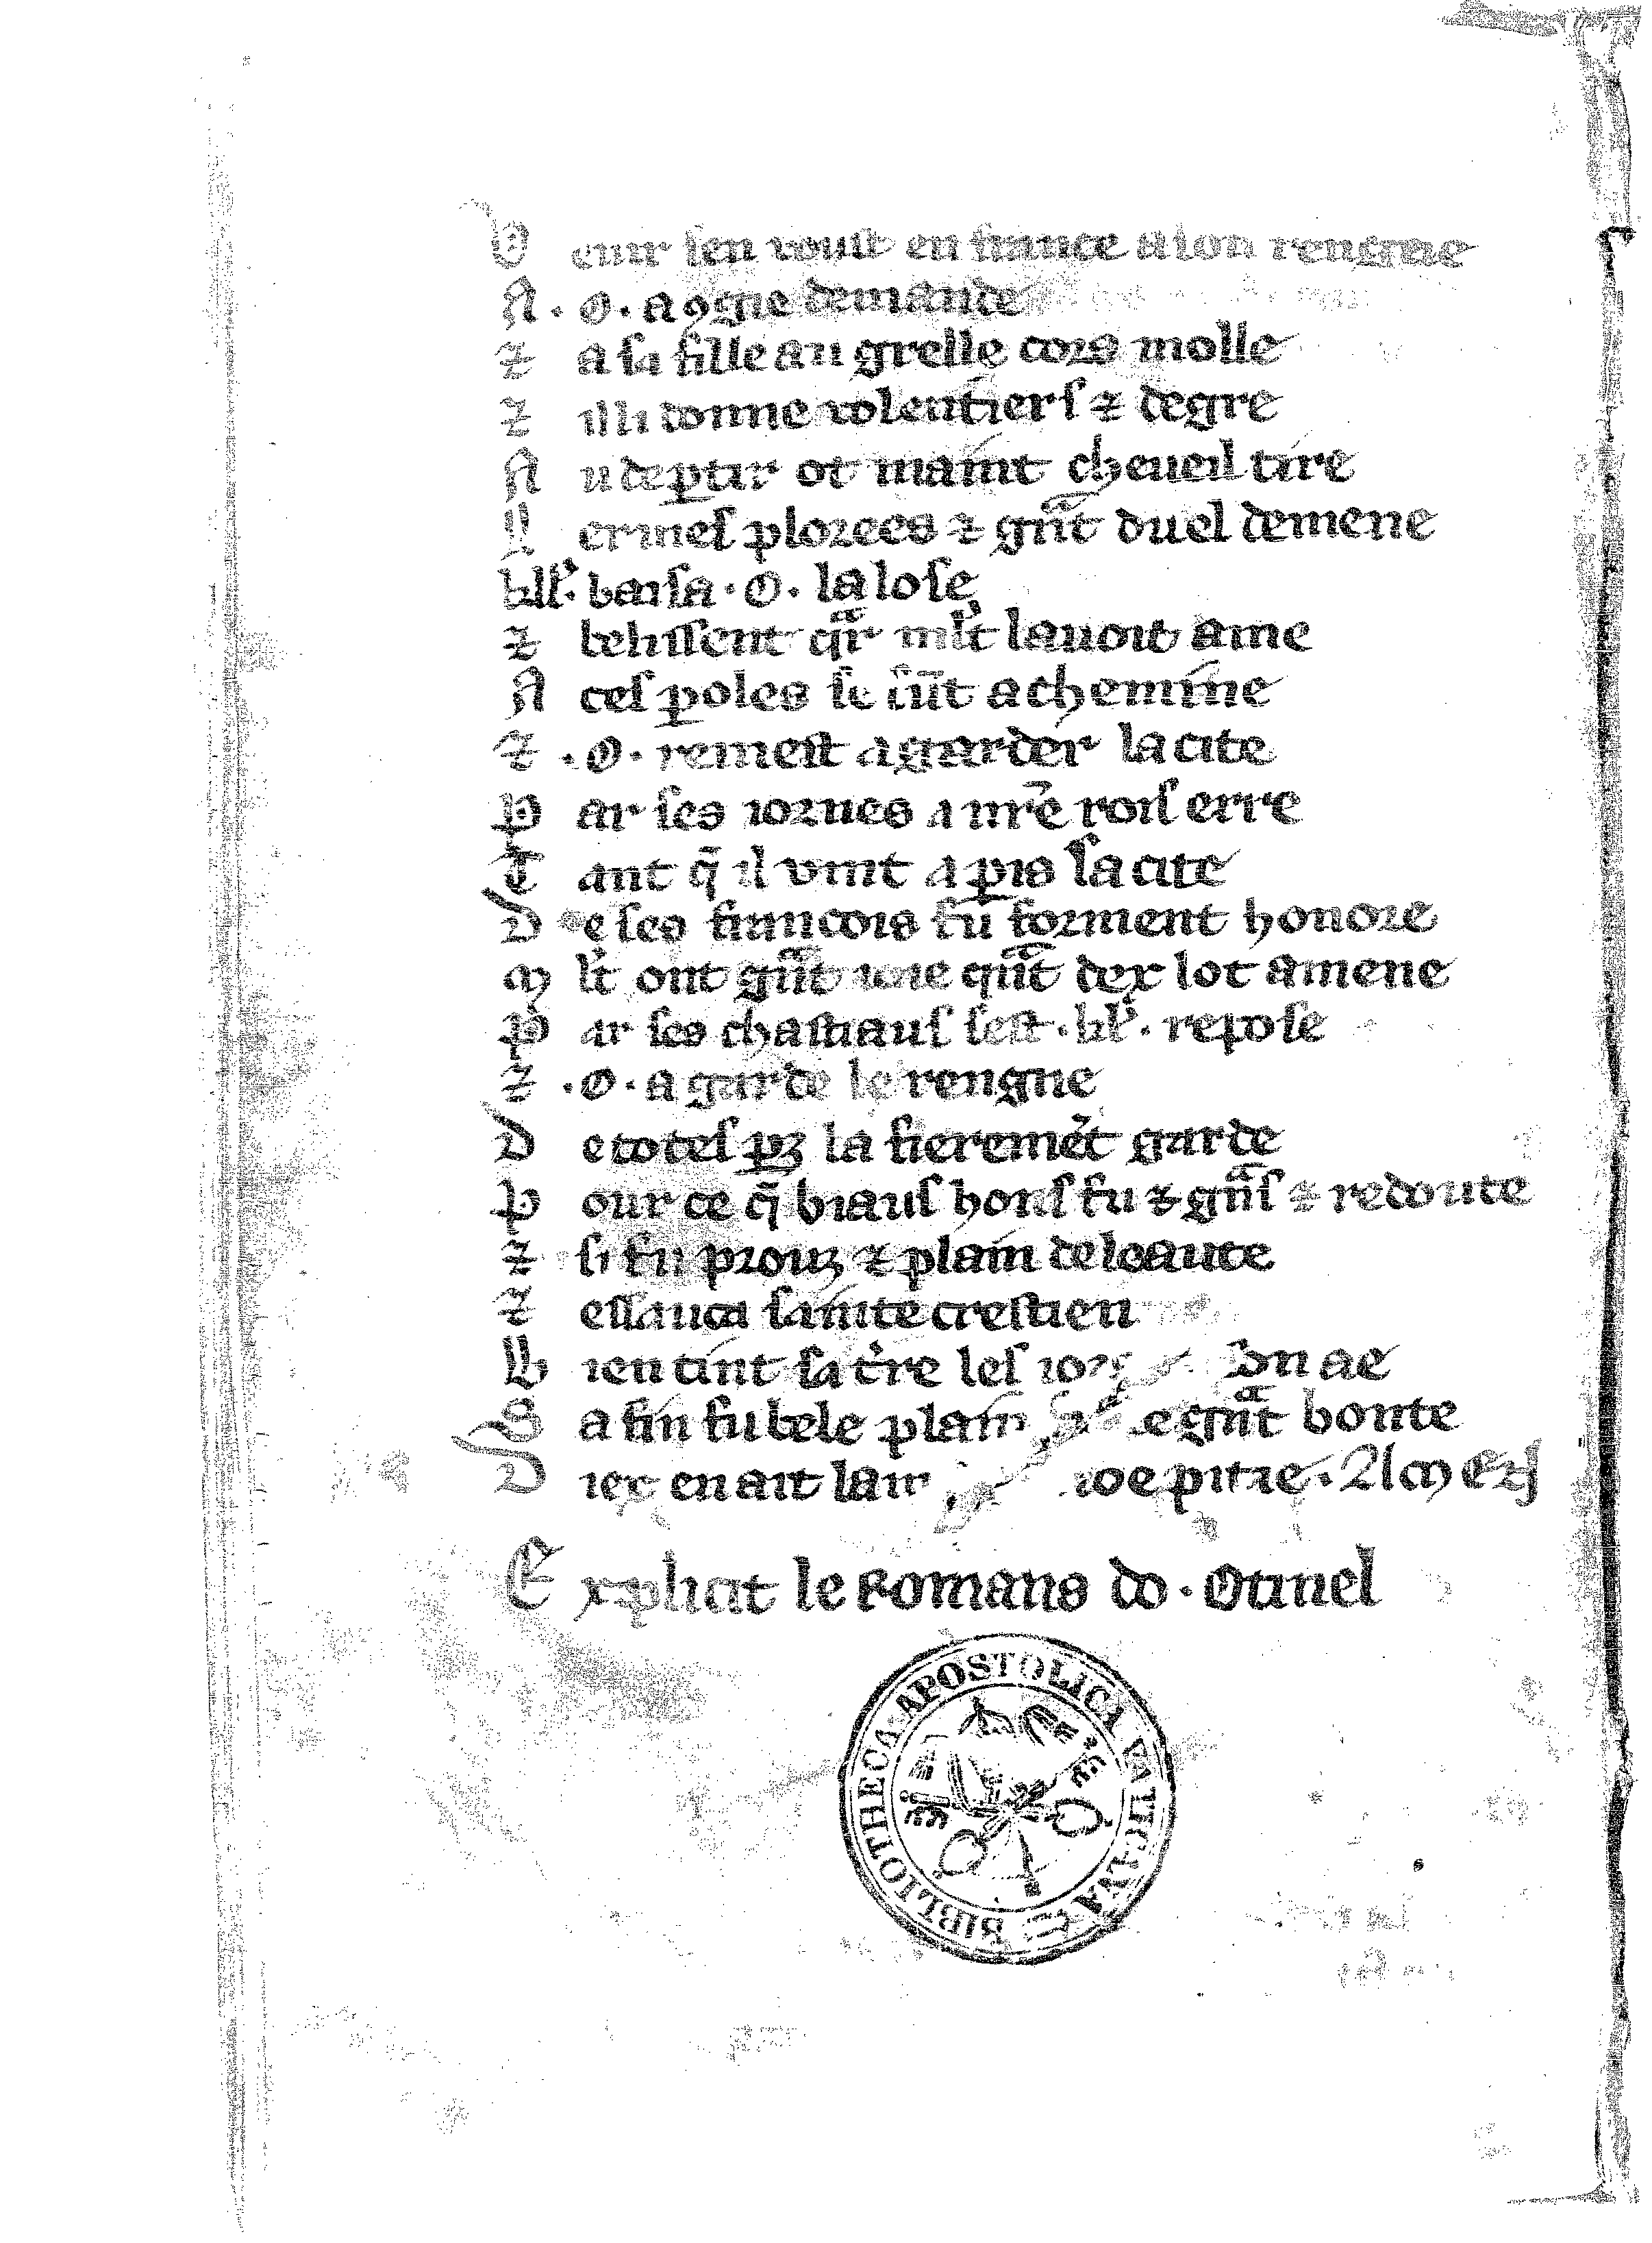 V enir sen voult en france a son rengne
A . O . a ꝯgie demande
⁊ a sa fille au grelle cors molle
⁊ il li donne volentiers ⁊ de gre
A u deꝑtir ot maint cheueil tire
L ermes plorees ⁊ gñt duel demene
kll'. baisa . O . la lose
⁊ behissent qͣr ml't lauoit ame
A ces ꝑoles se sūt achemine
⁊ . O . remest a garder la cite
P ar ses iornees a nr̄e rois erre
T ant q̄ il vint a ꝑis sa cite
D e ses francois fu forment honore
M l't ont gñt ioie qñt dex lot amene
P ar ses chastiaus sest . kl'. repose
⁊ . O . a garde le rengne
D e totes ꝑz la fieremēt garde
P our ce q̄ biaus hons fu ⁊ gñs ⁊ redoute
⁊ si fu prouz ⁊ plain de leaute
⁊ essauca sainte crestien
B ien tint sa t're les iors son ae
S a fin fu bele plain e gñt bonte
D iex en ait lam . AMEN
E xplicit le Romans do . Otinel
BIBLIOTHECA APOSTOLICA VATICANA